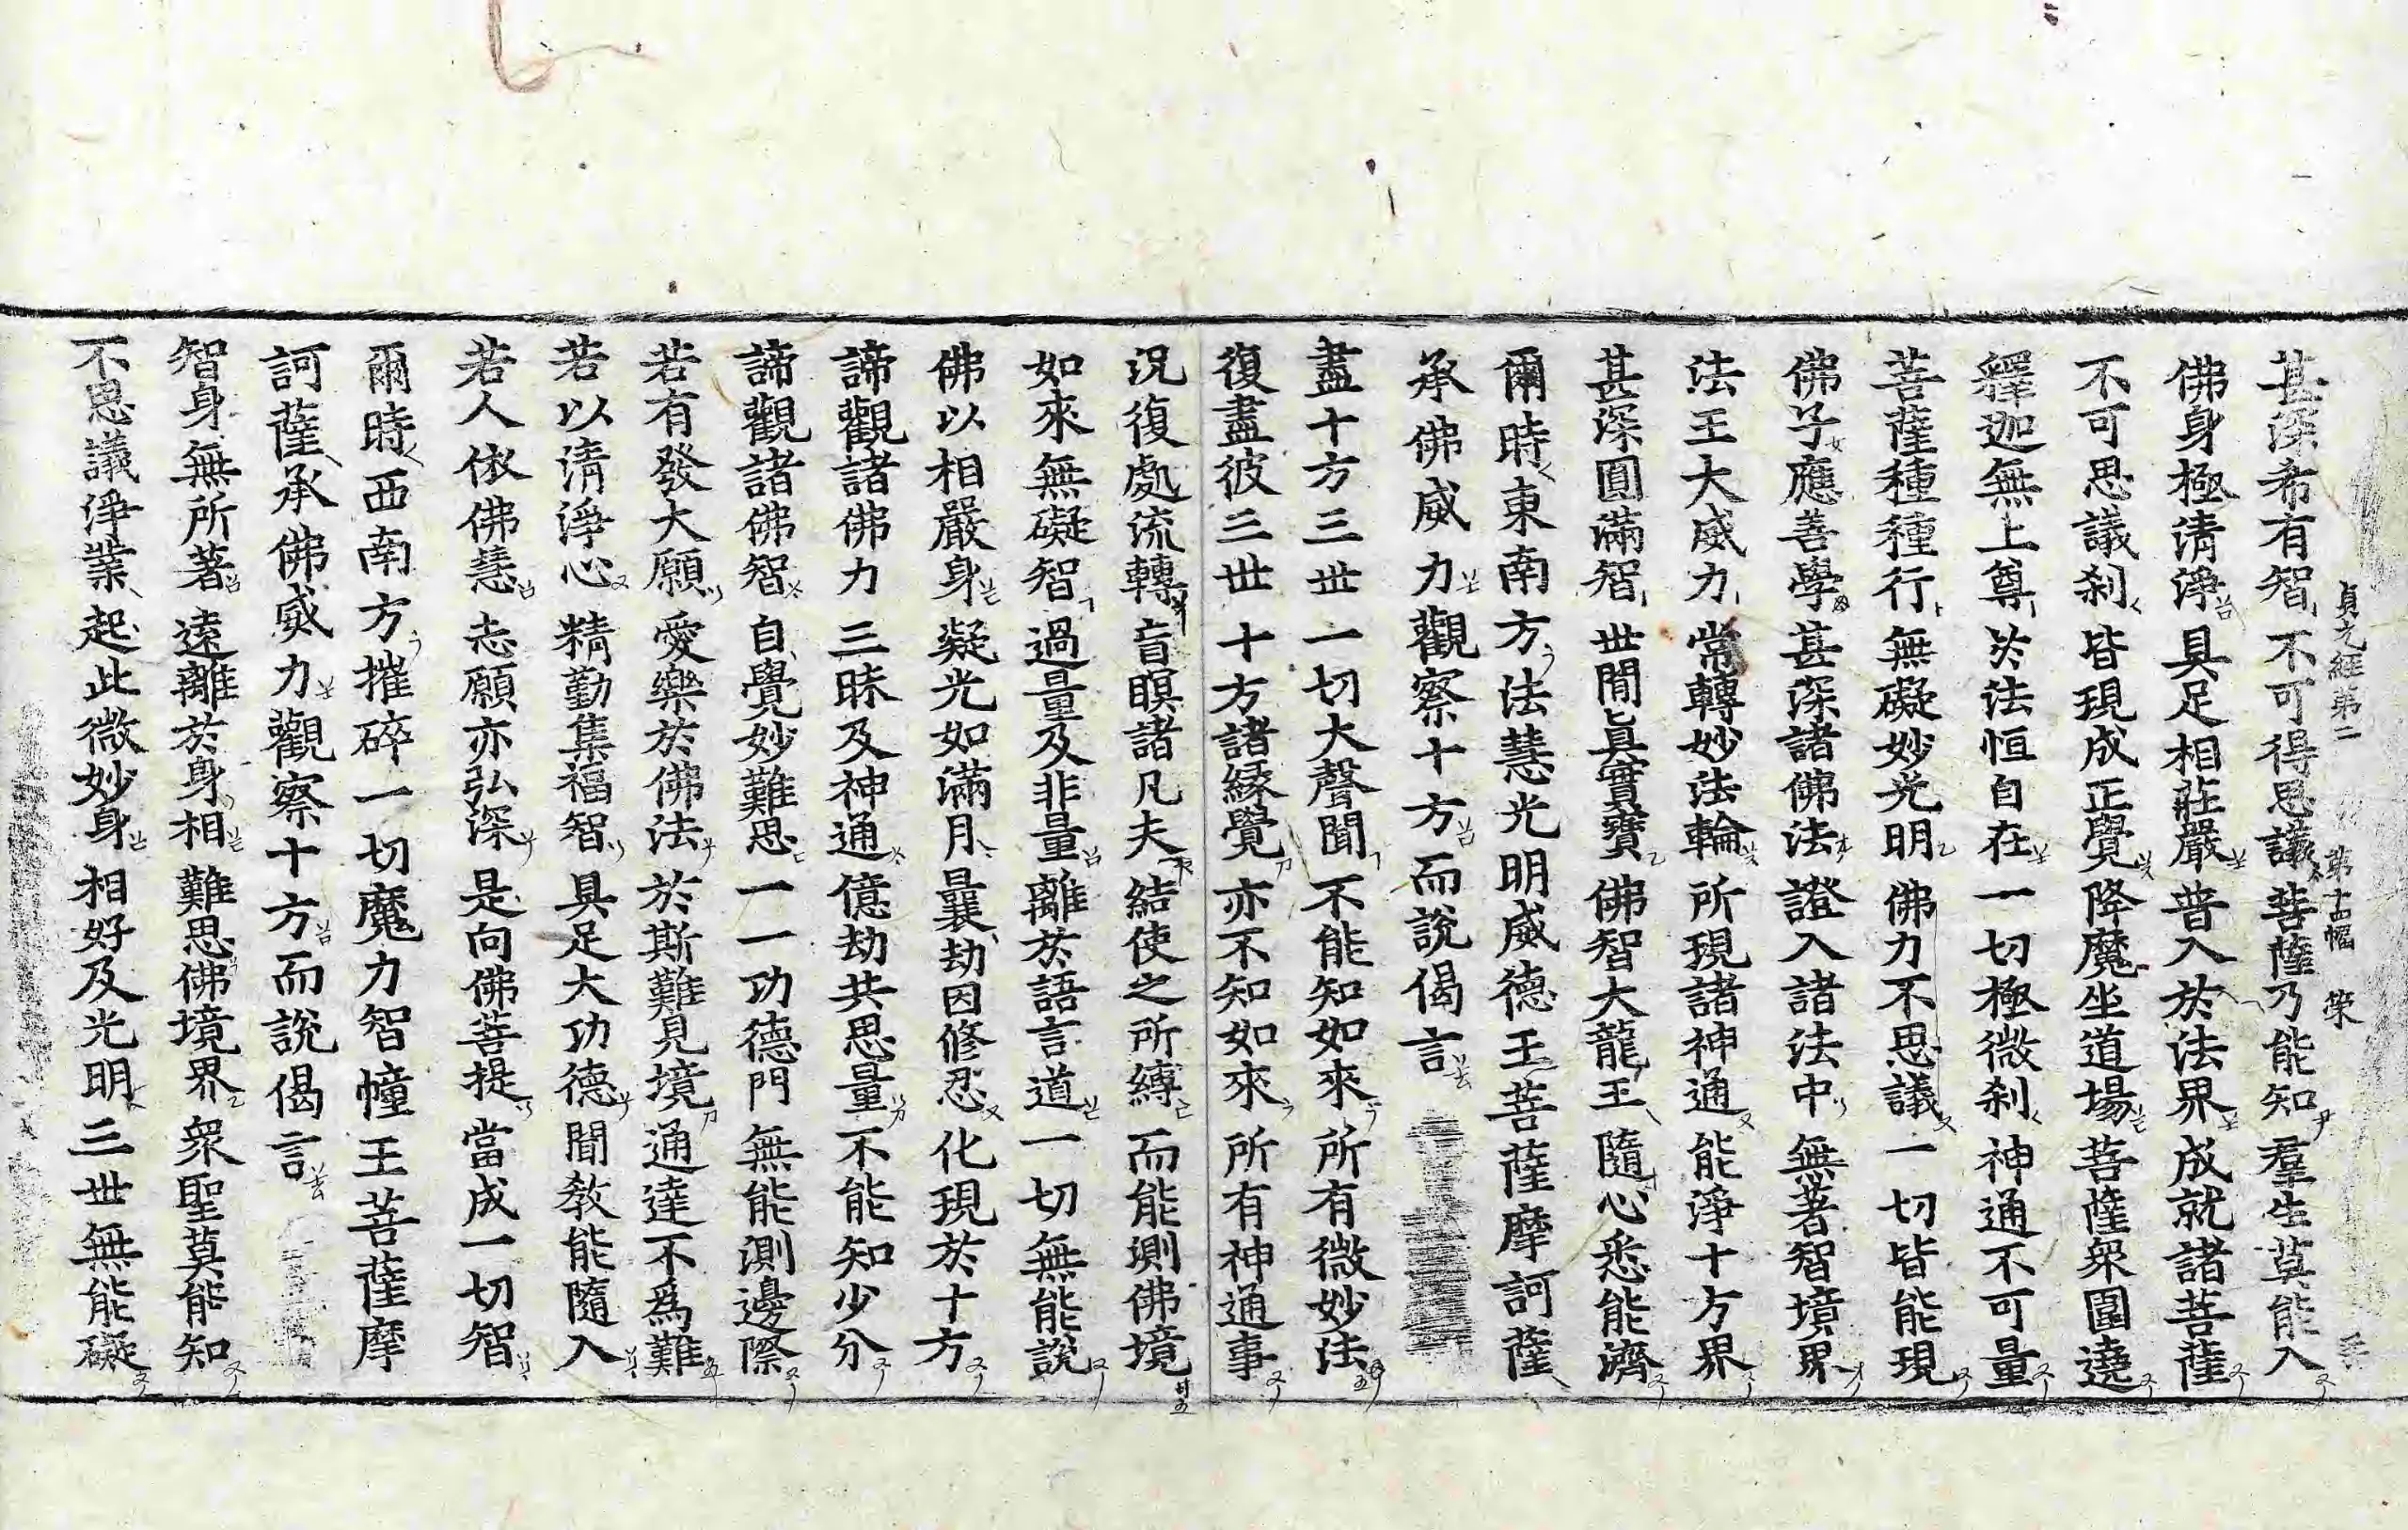 貞元經第二 第十四幅 榮
甚深希有智不可得思議菩薩乃能知羣生莫能入
佛身極淸淨具足相莊嚴普入於法界成就諸菩薩
不可思議刹皆現成正覺降魔坐道場菩薩衆圍遶
釋迦無上尊於法恒自在一切極微刹神通不可量
菩薩種種行無礙妙光明佛力不思議一切皆能現
佛子應善學甚深諸佛法證入諸法中無著智境界
法王大威力常轉妙法輪所現諸神通能淨十方界
甚深圓滿智世間眞實寶佛智大龍王隨心悉能濟
爾時東南方法慧光明威德王菩薩摩訶薩
承佛威力觀察十方而說偈言
盡十方三世一切大聲聞不能知如來所有微妙法
復盡彼三世十方諸緣覺亦不知如來所有神通事
況復處流轉盲瞑諸凡夫結使之所縛而能測佛境
如來無礙智過量及非量離於語言道一切無能說
佛以相嚴身凝光如滿月曩劫因修忍化現於十方
諦觀諸佛力三昧及神通億劫共思量不能知少分
諦觀諸佛智自覺妙難思一一功德門無能測邊際
若有發大願愛樂於佛法於斯難見境通達不爲難
若以清淨心精勤集福智具足大功德聞教能隨入
若人依佛慧志願亦弘深是向佛菩提當成一切智
爾時西南方摧碎一切魔力智幢王菩薩摩
訶薩承佛威力觀察十方而說偈言
智身無所著遠離於身相難思佛境界衆聖莫能知
不思議淨業起此微妙身相好及光明三世無能礙